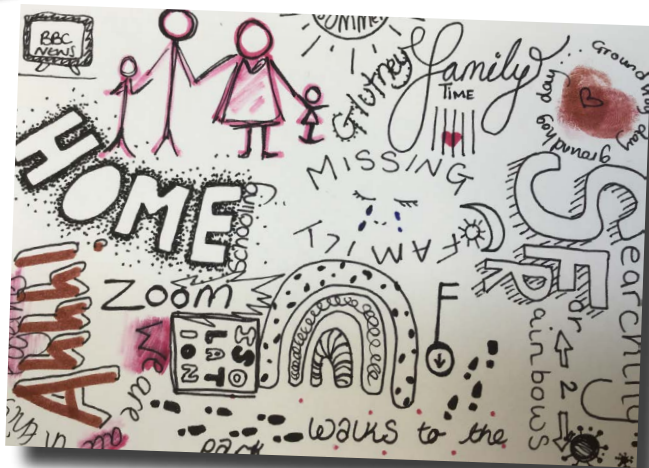 BBC
NEWS
SUMMER
family
TIME
Groundhog day
groundhog day
HOME
schooling
MISSING
FAMILY
Searching
For
Rainbows
2
Ahhh!
Zoom
ISO
LAT
ION
F
We are
all
walks to the
park